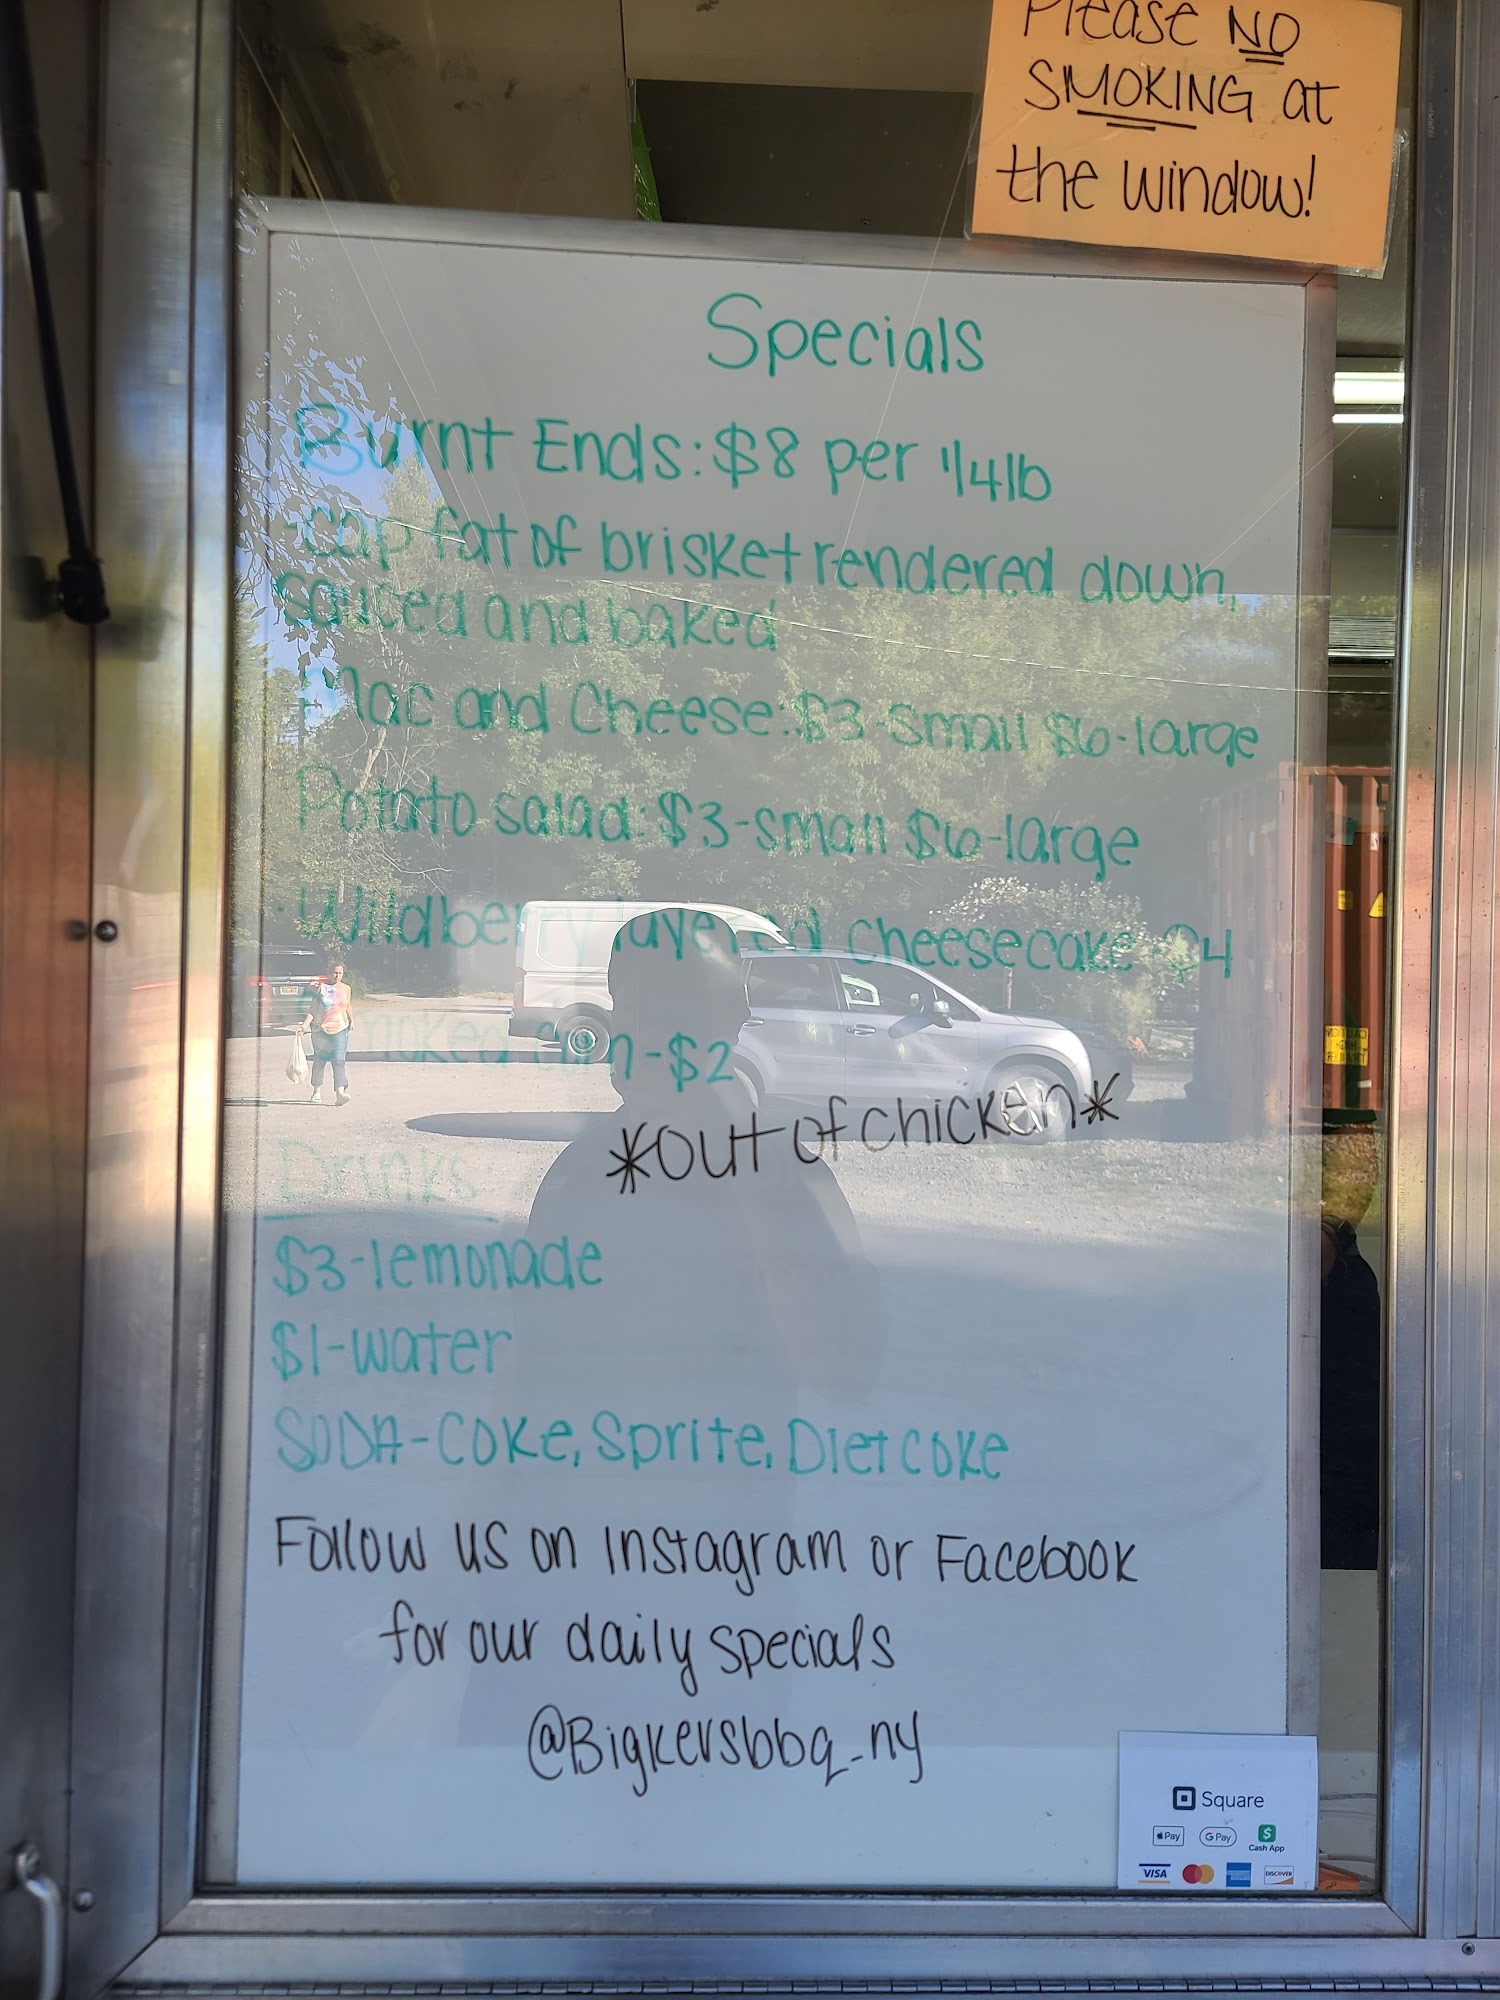 Please NO
SMOKING at
the window!
Specials
Burnt Ends: $8 per 1/4lb
-cap fat of brisket rendered down,
sauced and baked
Mac and Cheese: $3-small $6-large
Potato salad: $3-small $6-large
Wildberry layered cheesecake-$4
Smoked corn-$2
*out of chicken*
Drinks:
$3-lemonade
$1-water
SODA-COKE, Sprite, Diet COKE
Follow us on Instagram or Facebook
for our daily specials
@Bigkersbbq_ny
Square
Pay
G Pay
$
Cash App
VISA
DISCOVER